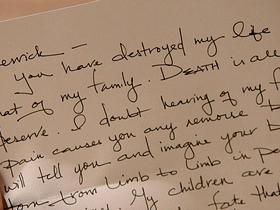 errick —
You have destroyed my life
at of my family. DEATH is all
deserve. I doubt hearing of my f
pain causes you any remorse
will tell you and imagine your b
torn from limb to limb in pe
My children are
fate th